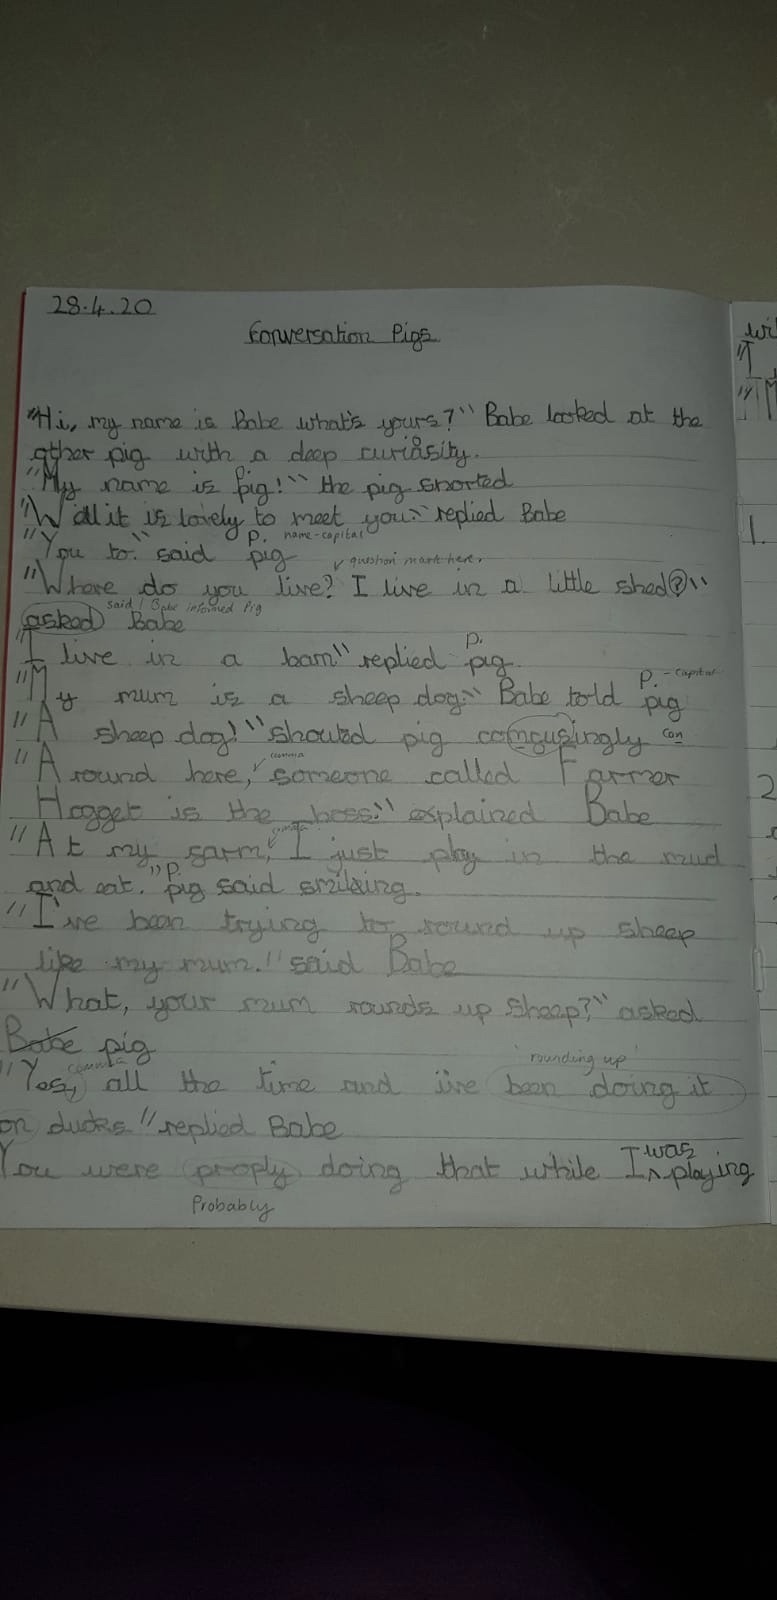 28.4.20
Conversation Pigs
wi
"Hi, my name is Babe what's yours?" Babe looked at the
other pig with a deep curiosity.
P.
"My name is pig!" the pig snorted
"Well it is lovely to meet you." replied Babe
P. name-capital
"You to." said pig
question mark here.
"Where do you live? I live in a little shed?"
said / Babe informed Pig
asked Babe
P.
"I live in a barn" replied pig.
P. - capital
"My mum is a sheep dog." Babe told pig
"A sheep dog!" shouted pig confusingly con
comma
"Around here, someone called Farmer
Hogget is the boss." explained Babe
comma
"At my farm, I just play in the mud
P.
and eat." pig said smiling.
"I've been trying to round up sheep
like my mum." said Babe
"What, your mum rounds up sheep?" asked
Babe pig
comma
rounding up
"Yes, all the time and i've been doing it
on ducks" replied Babe
was
You were proply doing that while I playing
Probably
1.
2